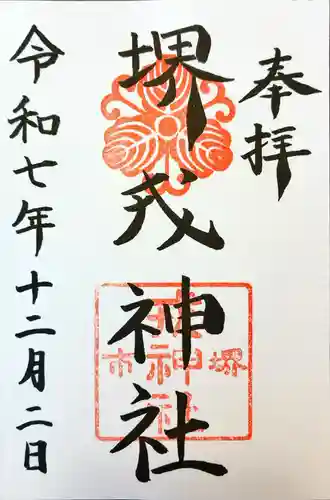 奉拝
堺戎神社
令和七年十二月二日
堺市
戎神社